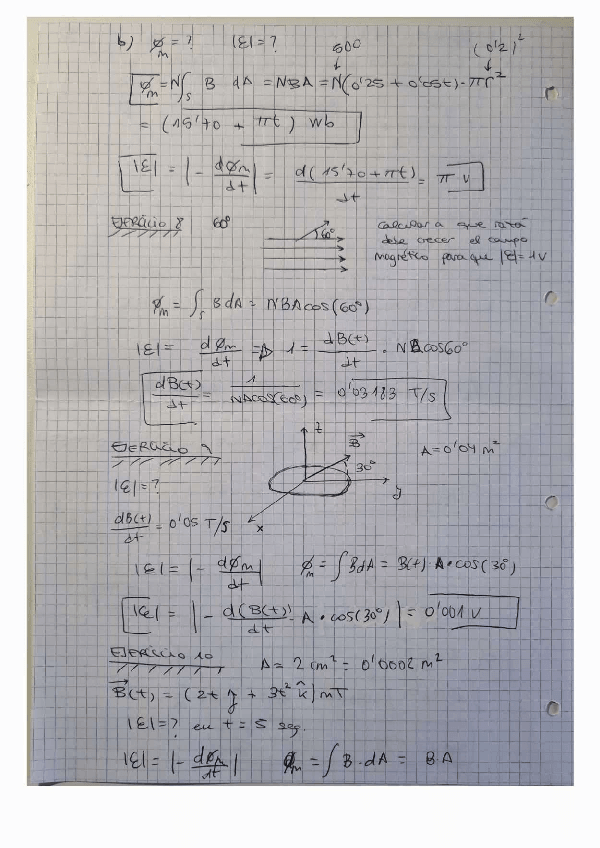 b) ϕm = ? |ε| = ? 500 (0'2)²
ϕm = N∫s B dA = NBA = N(0'25 + 0'05t)·πr²
= (15'70 + πt) Wb
|ε| = |- dϕm/dt| = d(15'70 + πt)/dt = π V
EJERCICIO 8 60º 60º calcular a que
debe crecer el campo
magnético para que |ε| = 1V
ϕm = ∫s B dA = NBA cos(60º)
|ε| = dϕm/dt => 1 = dB(t)/dt · NA cos60º
dB(t)/dt = 1/NAcos(60º) = 0'03183 T/s
EJERCICIO 9 z B 30º y x A = 0'04 m²
|ε| = ?
dB(t)/dt = 0'05 T/s
|ε| = |- dϕm/dt| ϕm = ∫BdA = B(t) A·cos(30º)
|ε| = |- d(B(t))/dt · A · cos(30º)| = 0'001 V
EJERCICIO 10 A = 2 cm² = 0'0002 m²
B(t) = (2t j + 3t² k) mT
|ε| = ? en t = 5 seg.
|ε| = |- dϕm/dt| ϕm = ∫B·dA = B·A